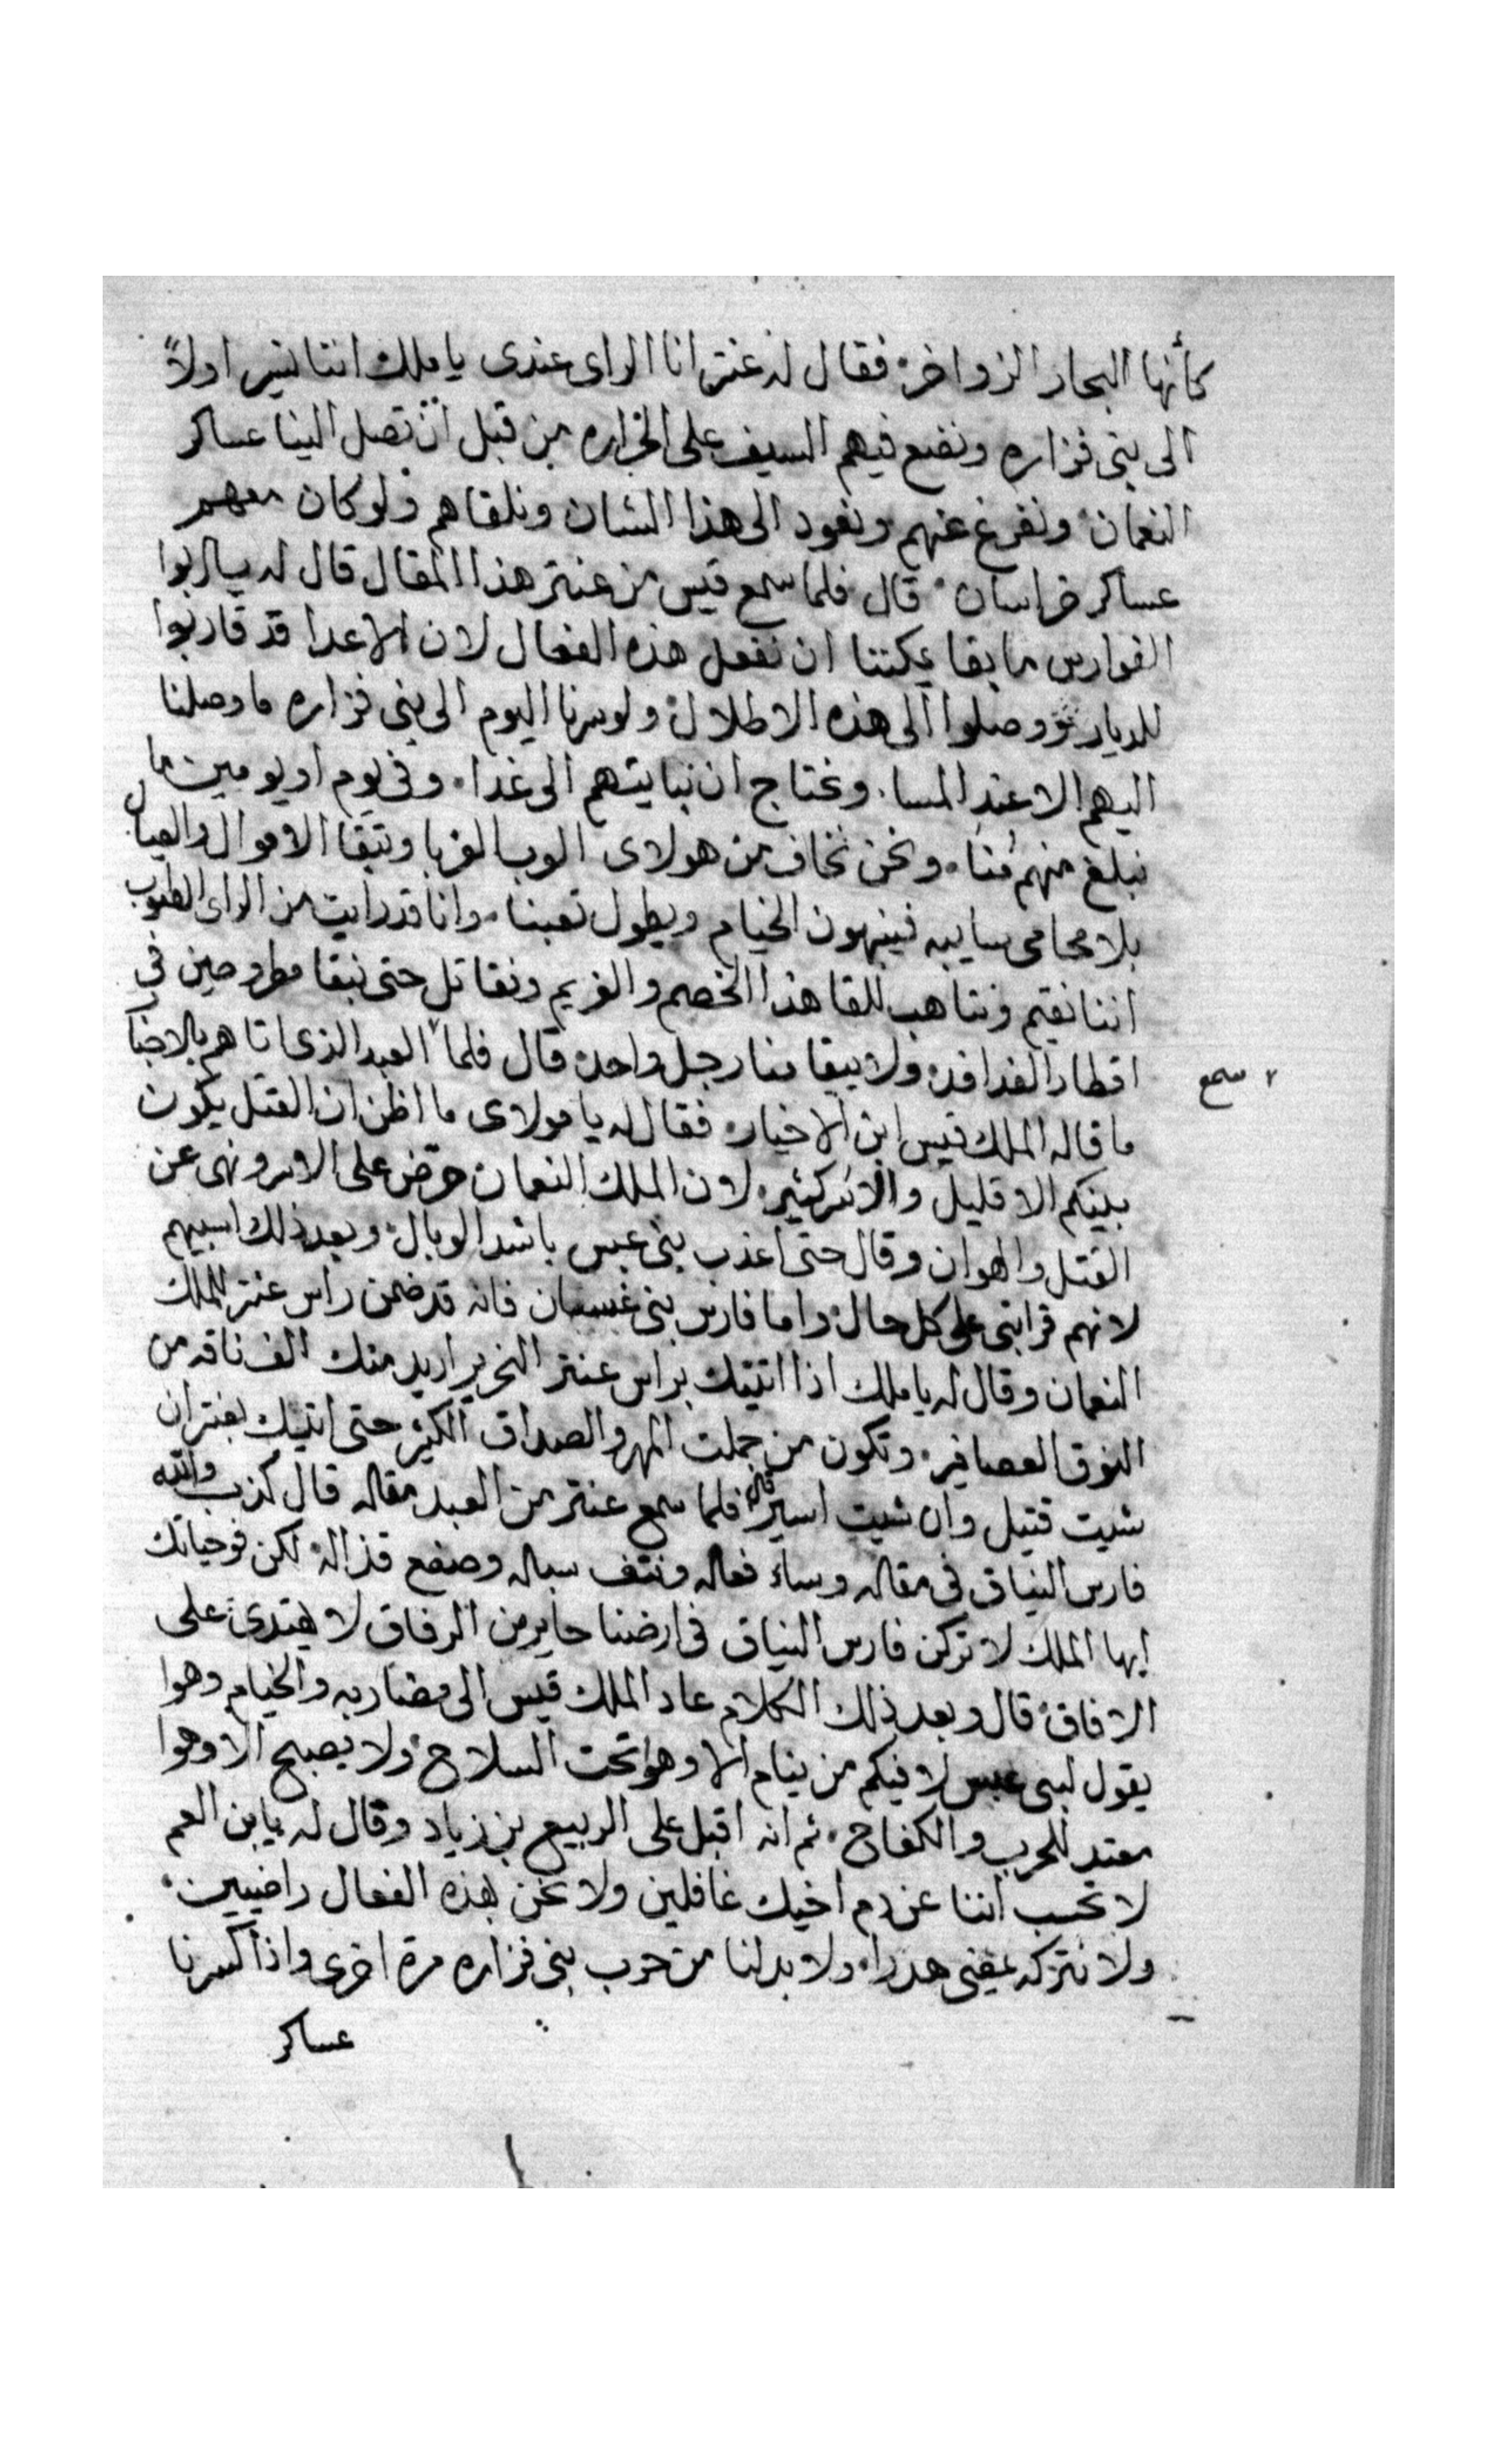 كأنها البحار الزواخر، فقال له عنتر انا الراى عندى يا ملك اننا نسير اولاً
الى بنى فزاره ونضع فيهم السيف على الجراره من قبل ان تصل الينا عساكر
النعمان، ونفرغ عنهم ونعود الى هذا الشان ونلقاهم ولو كان معهم
عساكر خراسان، قال فلما سمع قيس من عنتر هذا المقال قال له يا ابو
الفوارس ما بقا يمكننا ان نفعل هذه الفعال لان الاعدا قد قاربوا
للديار ووصلوا الى هذه الاطلال، ولو سرنا اليوم الى بنى فزاره ما وصلنا
اليهم الا عند المسا، ونحتاج ان نبايتهم الى غدا، وفى يوم او يومين ما
نبلغ منهم منا، ونحن نخاف من هولاى العربا وتبقا الاموال والعيال
بلا محامى سايبه فينهبون الخيام ويطول تعبنا، وانا قد رايت من الراى الصوب
اننا نقيم ونتاهب للقا هذا الخصم والغريم ونقاتل حتى نبقا مطروحين فى
اقطار الفدافد، ولا يبقا منا رجل واحد، قال فلما العبد الذى اتاهم بالاخبار
سمع
ما قاله الملك قيس ابن الاخيار، فقال له يا مولاى ما اظن ان القتل يكون
بينكم الا قليل والاسر كثير، لان الملك النعمان حرض على الاسر ونهى عن
القتل والهوان وقال حتى اعذب بنى عبس باشد الوبال، وبعد ذلك اسبيهم
لانهم قرابتى على كل حال، واما فارس بنى غسان فانه قد ضمن راس عنتر للملك
النعمان وقال له يا ملك اذا اتيتك براس عنتر النحرير اريد منك الف ناقه من
النوق العصافير، وتكون من جملت المهر والصداق الكثير حتى اتيك بعنتر ان
شيت قتيل وان شيت اسير، قال فلما سمع عنتر من العبد مقاله قال كذب والله
فارس النياق فى مقاله وساء فعاله ونتف سباله وصفع قذاله، لكن فوحياتك
ايها الملك لا تركن فارس النياق فى ارضنا حاير من الرفاق لا يهتدى على
الافاق، قال وبعد ذلك الكلام عاد الملك قيس الى مضاربه والخيام وهوا
يقول لبنى عبس لا فيكم من ينام الا وهوا تحت السلاح، ولا يصبح الا وهوا
معتد للحرب والكفاح، ثم انه اقبل على الربيع بن زياد وقال له يا بن العم
لا تحسب اننا عن دم اخيك غافلين ولا نحن بهذه الفعال راضيين،
ولا نتركه يمضى هدرا، ولا بد لنا من حرب بنى فزاره مرة اخرى واذا كسرنا
عساكر